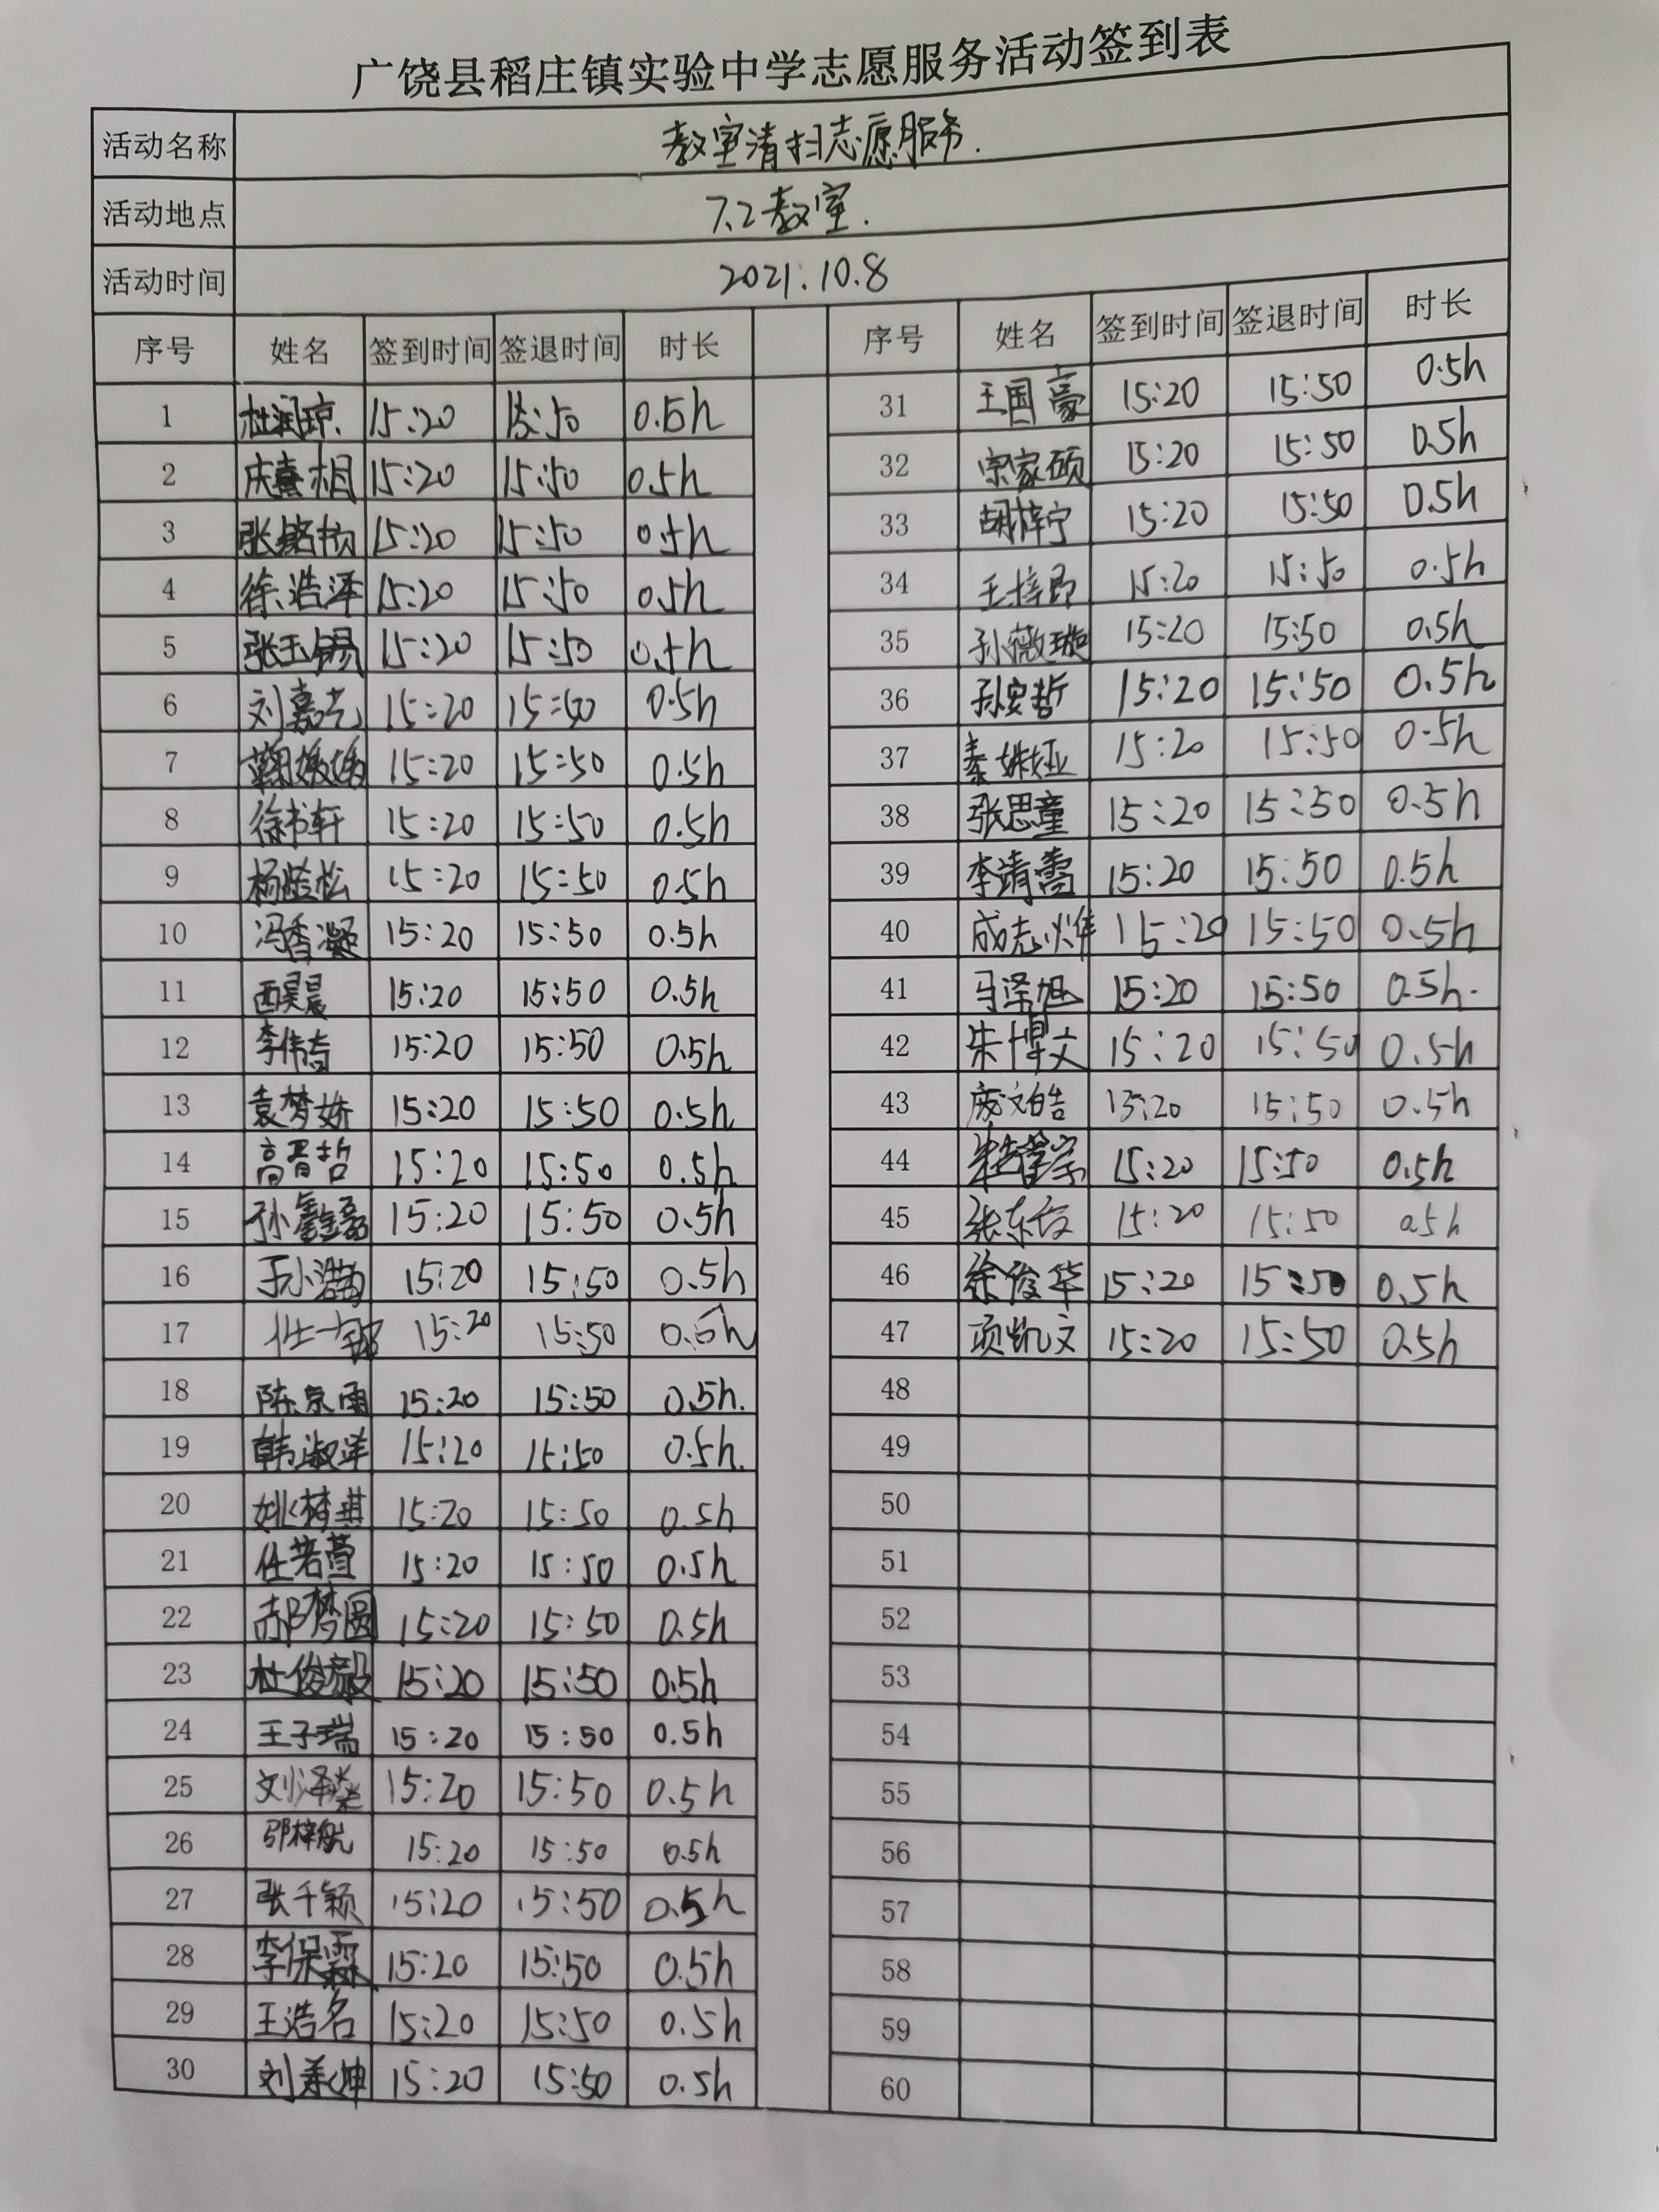 广饶县稻庄镇实验中学志愿服务活动签到表
活动名称 教室清扫志愿服务.
活动地点 7.2教室.
活动时间 2021.10.8
序号 姓名 签到时间 签退时间 时长 序号 姓名 签到时间 签退时间 时长
1 杜润琼 15:20 15:50 0.5h 31 王国豪 15:20 15:50 0.5h
2 庆熹相 15:20 15:50 0.5h 32 宗家硕 15:20 15:50 0.5h
3 15:20 15:50 0.5h 33 胡梓宁 15:20 15:50 0.5h
4 徐浩泽 15:20 15:50 0.5h 34 15:20 15:50 0.5h
5 张玉锡 15:20 15:50 0.5h 35 孙薇璇 15:20 15:50 0.5h
6 刘嘉尧 15:20 15:50 0.5h 36 孙安哲 15:20 15:50 0.5h
7 15:20 15:50 0.5h 37 秦姝娅 15:20 15:50 0.5h
8 徐书轩 15:20 15:50 0.5h 38 张思童 15:20 15:50 0.5h
9 15:20 15:50 0.5h 39 李靖蕾 15:20 15:50 0.5h
10 冯香凝 15:20 15:50 0.5h 40 成志烨 15:20 15:50 0.5h
11 西昊晨 15:20 15:50 0.5h 41 马泽旭 15:20 15:50 0.5h.
12 李伟奇 15:20 15:50 0.5h 42 朱博文 15:20 15:50 0.5h
13 袁梦娇 15:20 15:50 0.5h 43 庞文皓 15:20 15:50 0.5h
14 高晋哲 15:20 15:50 0.5h 44 15:20 15:50 0.5h
15 孙鑫磊 15:20 15:50 0.5h 45 15:20 15:50 0.5h
16 15:20 15:50 0.5h 46 徐俊华 15:20 15:50 0.5h
17 15:20 15:50 0.5h 47 项凯文 15:20 15:50 0.5h
18 陈京雨 15:20 15:50 0.5h. 48
19 韩淑洋 15:20 15:50 0.5h. 49
20 姚梦琪 15:20 15:50 0.5h 50
21 任若萱 15:20 15:50 0.5h 51
22 郝梦圆 15:20 15:50 0.5h 52
23 杜俊毅 15:20 15:50 0.5h 53
24 王子瑞 15:20 15:50 0.5h 54
25 刘泽燊 15:20 15:50 0.5h 55
26 邵梓航 15:20 15:50 0.5h 56
27 张千颖 15:20 15:50 0.5h 57
28 李保霖 15:20 15:50 0.5h 58
29 王浩名 15:20 15:50 0.5h 59
30 刘承坤 15:20 15:50 0.5h 60